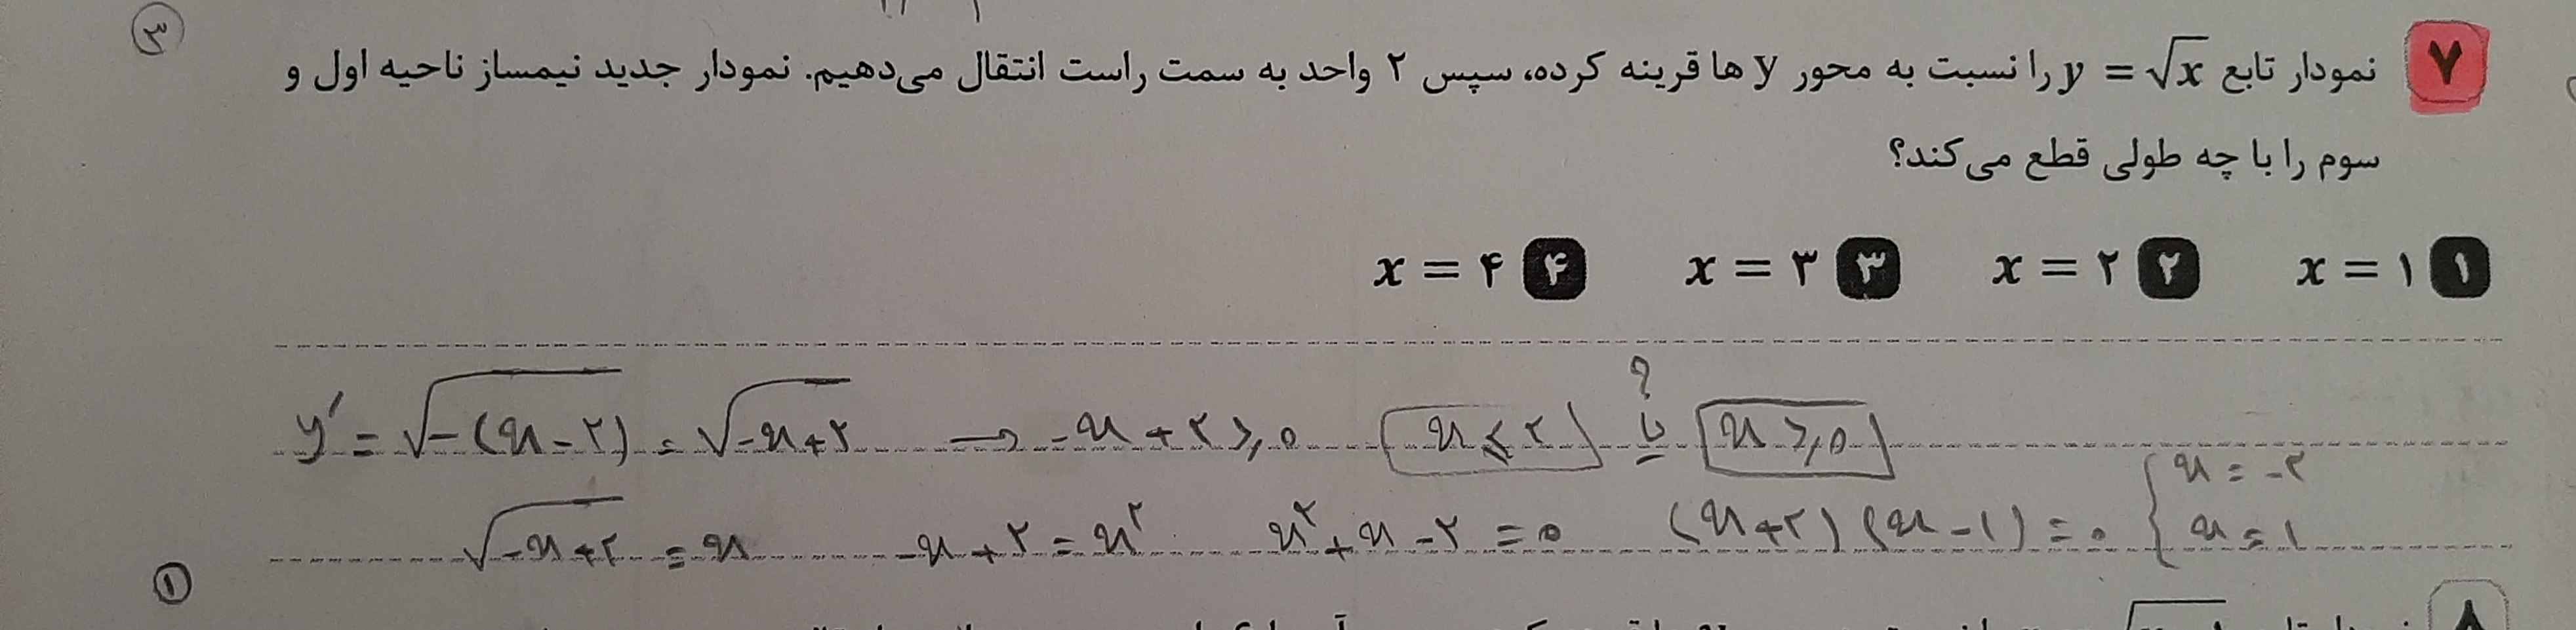 ۳
۷ نمودار تابع y = √x را نسبت به محور y ها قرینه کرده، سپس ۲ واحد به سمت راست انتقال می‌دهیم. نمودار جدید نیمساز ناحیه اول و
سوم را با چه طولی قطع می‌کند؟
۱ x = ۱ ۲ x = ۲ ۳ x = ۳ ۴ x = ۴
y′ = √-(x-۲) = √-x+۲ → -x+۲ ≥ ۰ x ≤ ۲ یا ? x ≥ ۰
√-x+۲ = x -x+۲ = x² x²+x-۲ = ۰ (x+۲)(x-۱) = ۰ { x = -۲ x = ۱
۱
۸